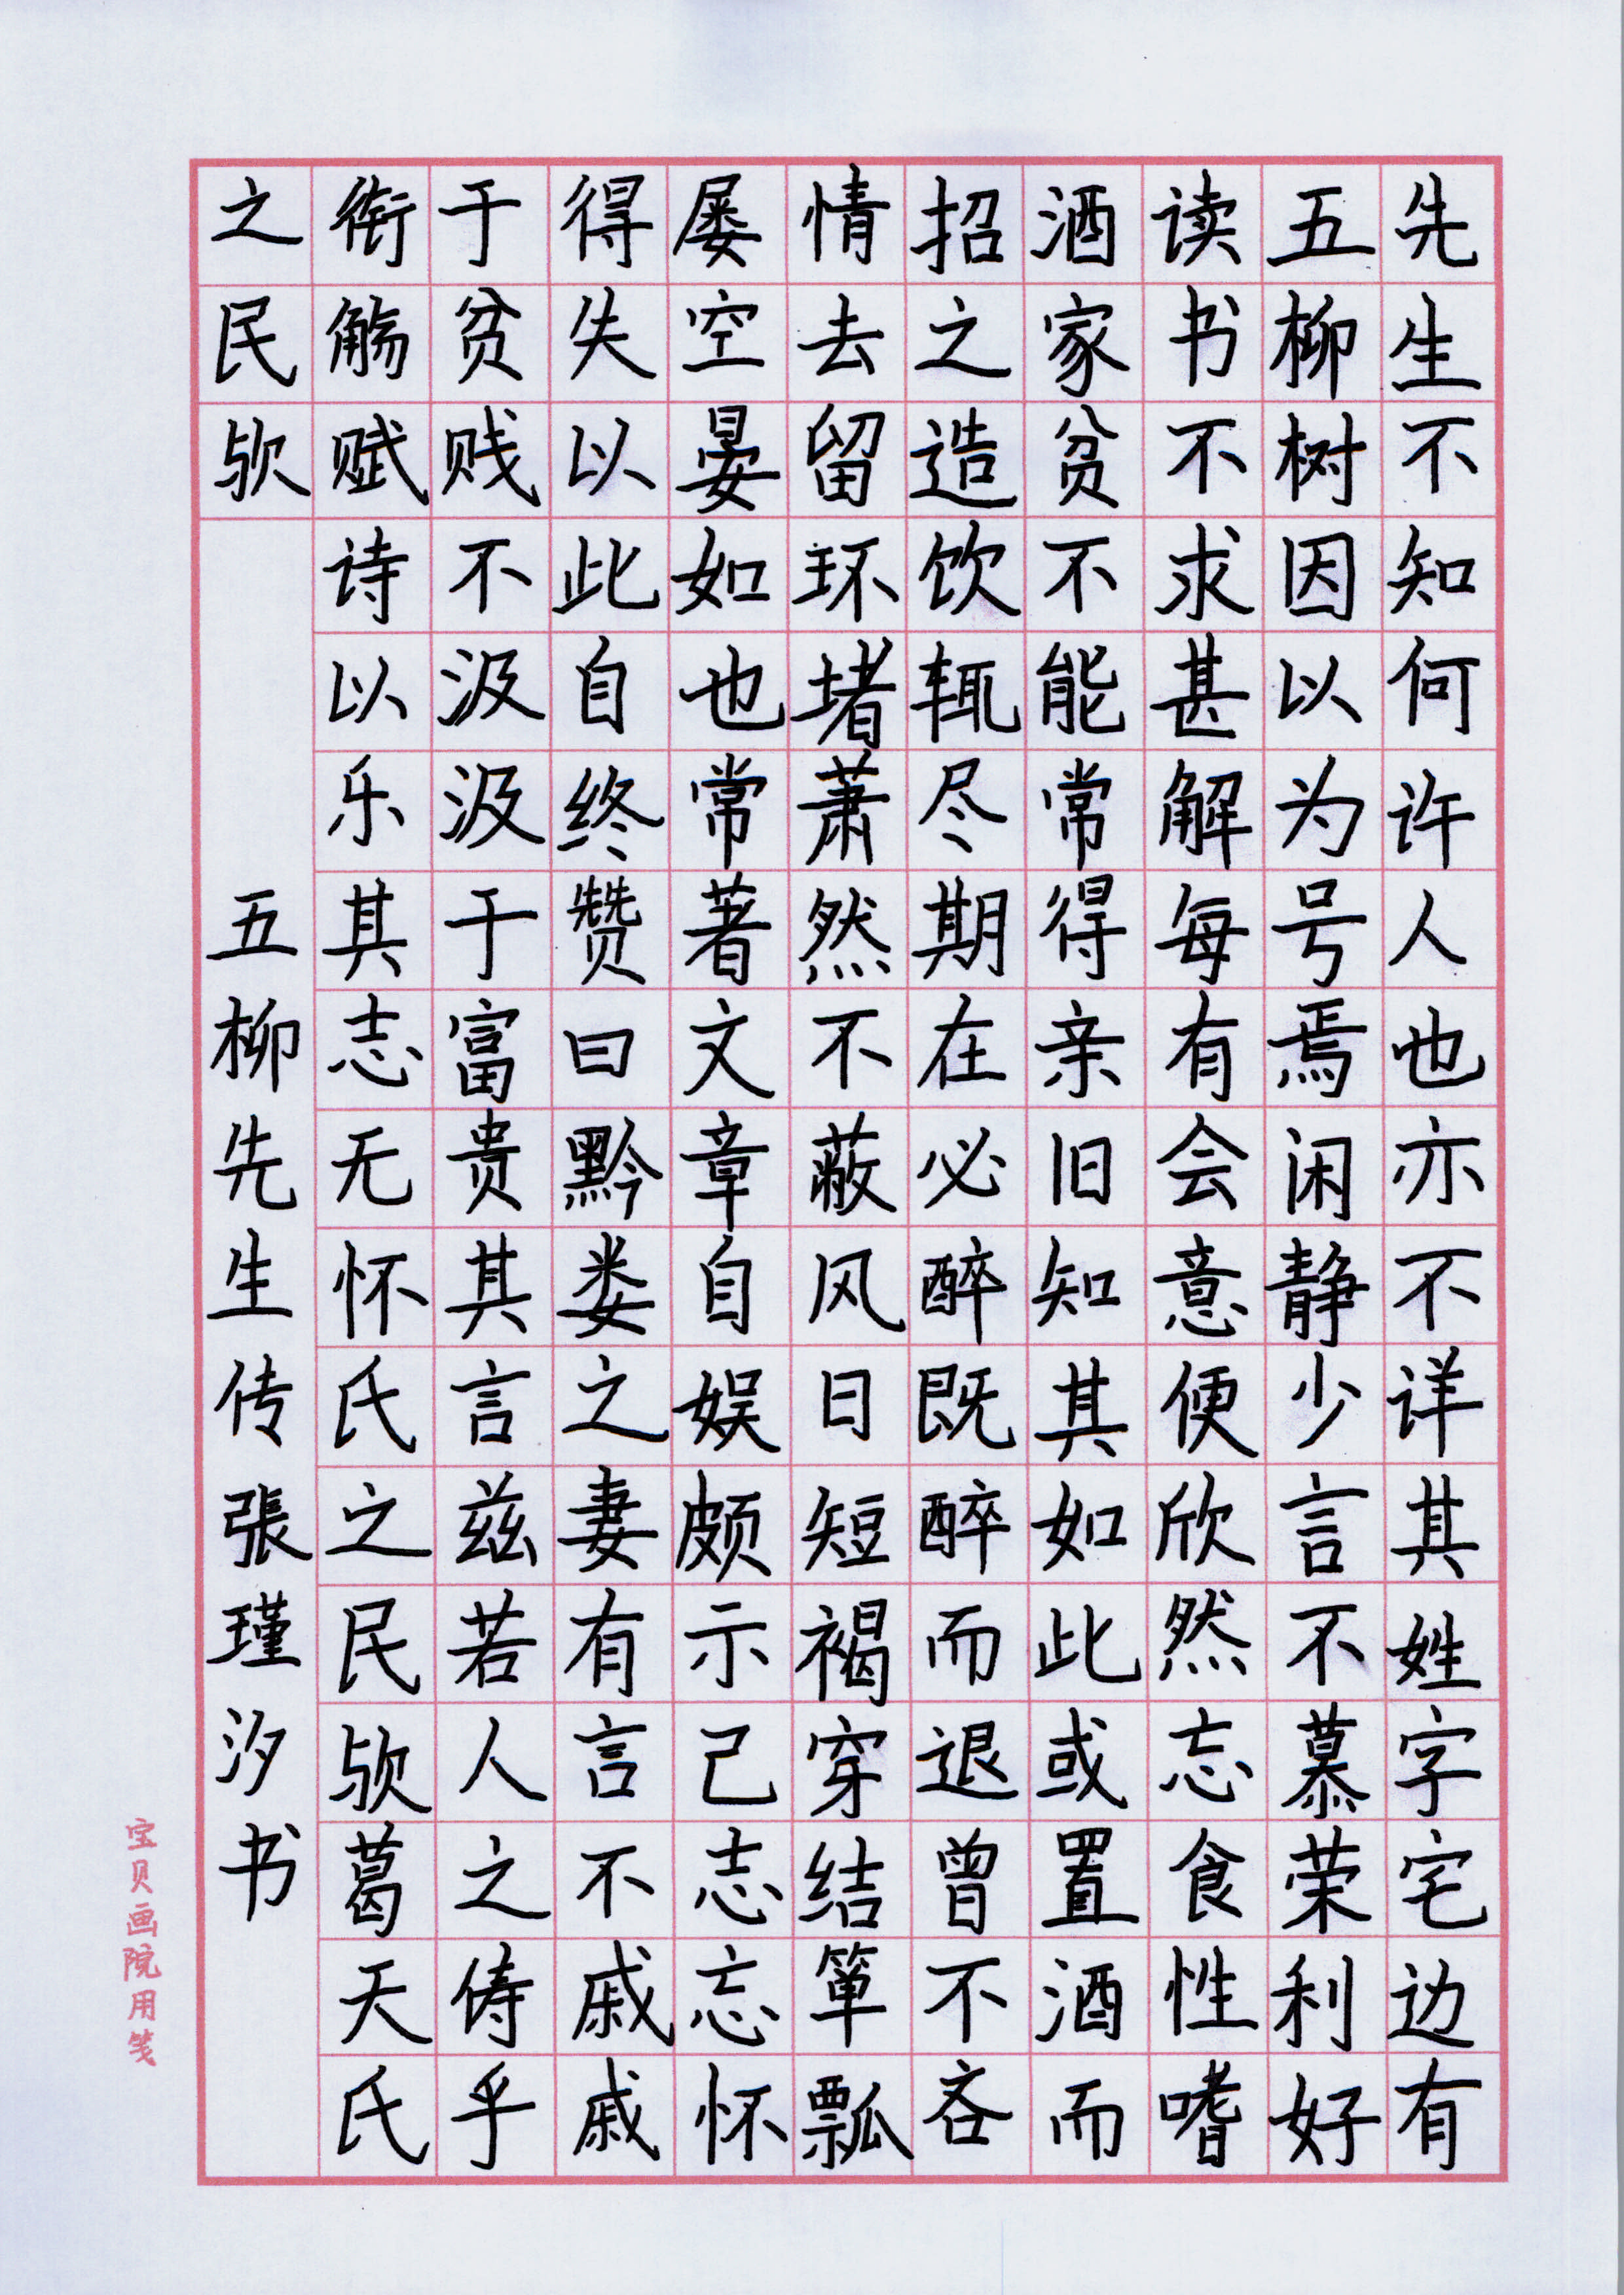 先生不知何许人也亦不详其姓字宅边有
五柳树因以为号焉闲静少言不慕荣利好
读书不求甚解每有会意便欣然忘食性嗜
酒家贫不能常得亲旧知其如此或置酒而
招之造饮辄尽期在必醉既醉而退曾不吝
情去留环堵萧然不蔽风日短褐穿结箪瓢
屡空晏如也常著文章自娱颇示己志忘怀
得失以此自终赞曰黔娄之妻有言不戚戚
于贫贱不汲汲于富贵其言兹若人之俦乎
衔觞赋诗以乐其志无怀氏之民欤葛天氏
之民欤
五柳先生传張瑾汐书
宝贝画院用笺